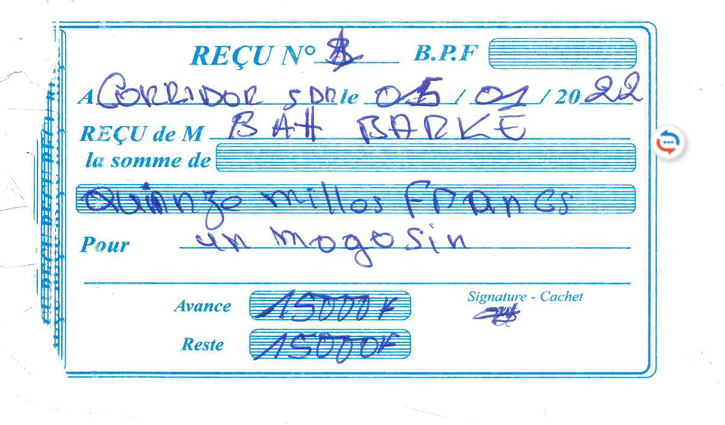 REÇU N° B.P.F
A CORRIDOR SDR le 05 / 01 / 2022
REÇU de M BAH BARKE
la somme de
Quinze milles francs
Pour un mogosin
Avance 15000F Signature - Cachet
Reste 15000F